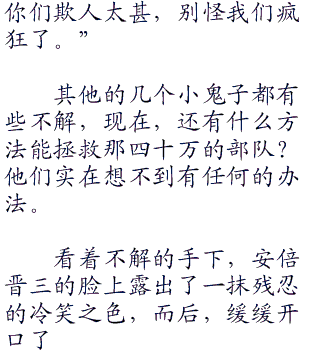 你们欺人太甚，别怪我们疯
狂了。”
其他的几个小鬼子都有
些不解，现在，还有什么方
法能拯救那四十万的部队？
他们实在想不到有任何的办
法。
看着不解的手下，安倍
晋三的脸上露出了一抹残忍
的冷笑之色，而后，缓缓开
口了